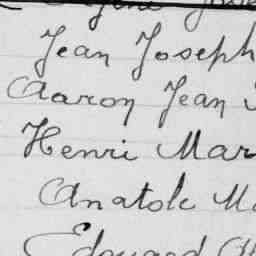 Jean Joseph
Aaron Jean
Henri Mar
Anatole Ma
Edouard